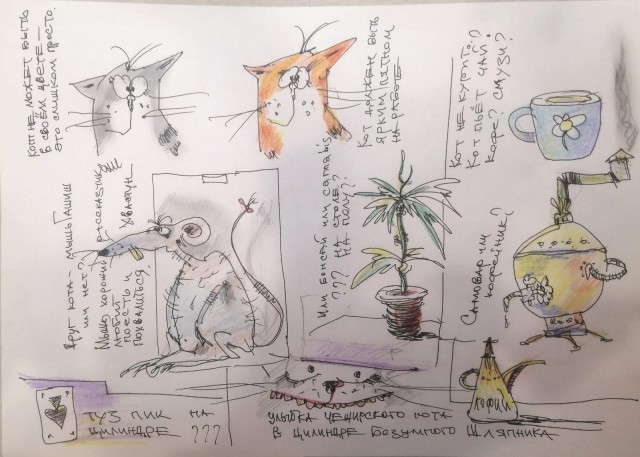 КОТ НЕ МОЖЕТ БЫТЬ
В СВОЁМ ЦВЕТЕ –
ЭТО СЛИШКОМ ПРОСТО.
КОТ ДОЛЖЕН БЫТЬ
ЯРКИМ ПЯТНОМ
НА РАБОТЕ
КОТ НЕ КУРИТ.
КОТ ПЬЁТ ЧАЙ?
КОФЕ? СМУЗИ?
ДРУГ КОТА – МЫШЬ ГАШИШ
ИЛИ НЕТ?
МЫШЬ ХОРОШИЙ РАССКАЗЧИК
ЛЮБИТ
ПОЕСТЬ И
ПОХВАЛИТЬСЯ.
ХВАСТУН
ИЛИ БОНСАЙ ИЛИ cannabis
??? НА СТОЛЕ?
НА ПОЛУ?
САМОВАР ИЛИ
КОФЕЙНИК?
КОФИЙ
ТУЗ ПИК НА
ЦИЛИНДРЕ ???
УЛЫБКА ЧЕШИРСКОГО КОТА
В ЦИЛИНДРЕ БЕЗУМНОГО ШЛЯПНИКА